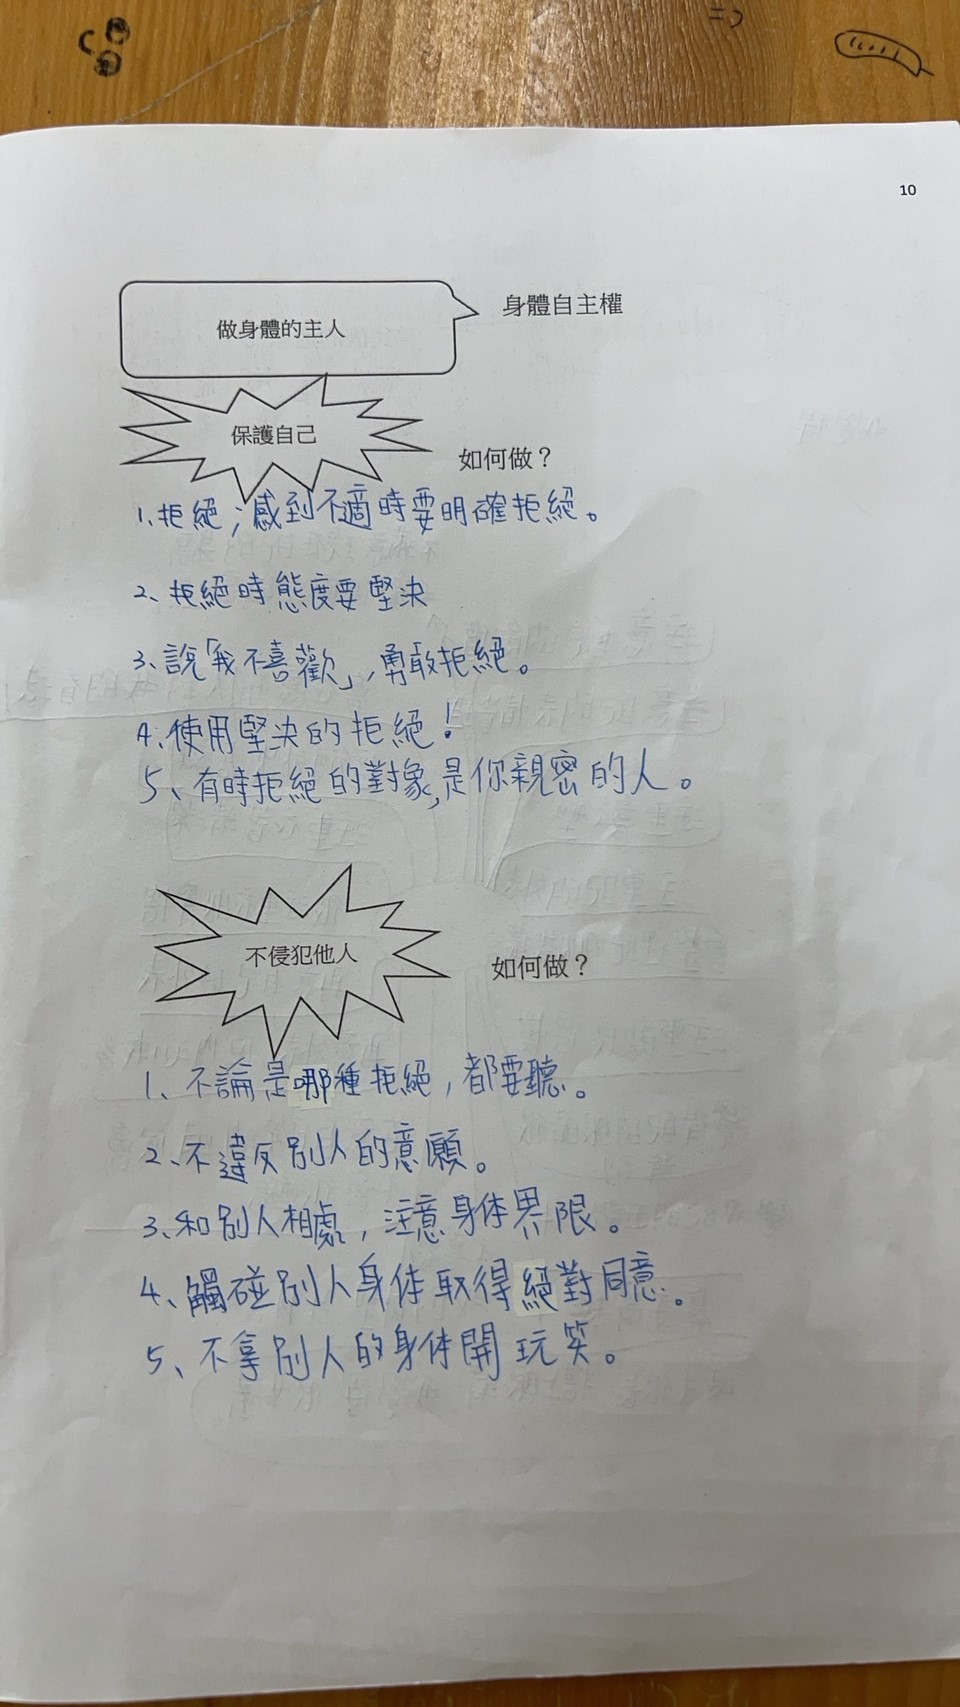 10
做身體的主人
身體自主權
保護自己
如何做？
1、拒絕；感到不適時要明確拒絕。
2、拒絕時態度要堅決
3、說「我不喜歡」，勇敢拒絕。
4、使用堅決的拒絕！
5、有時拒絕的對象，是你親密的人。
不侵犯他人
如何做？
1、不論是哪種拒絕，都要聽。
2、不違反別人的意願。
3、和別人相處，注意身体界限。
4、觸碰別人身体取得絕對同意。
5、不拿別人的身体開玩笑。